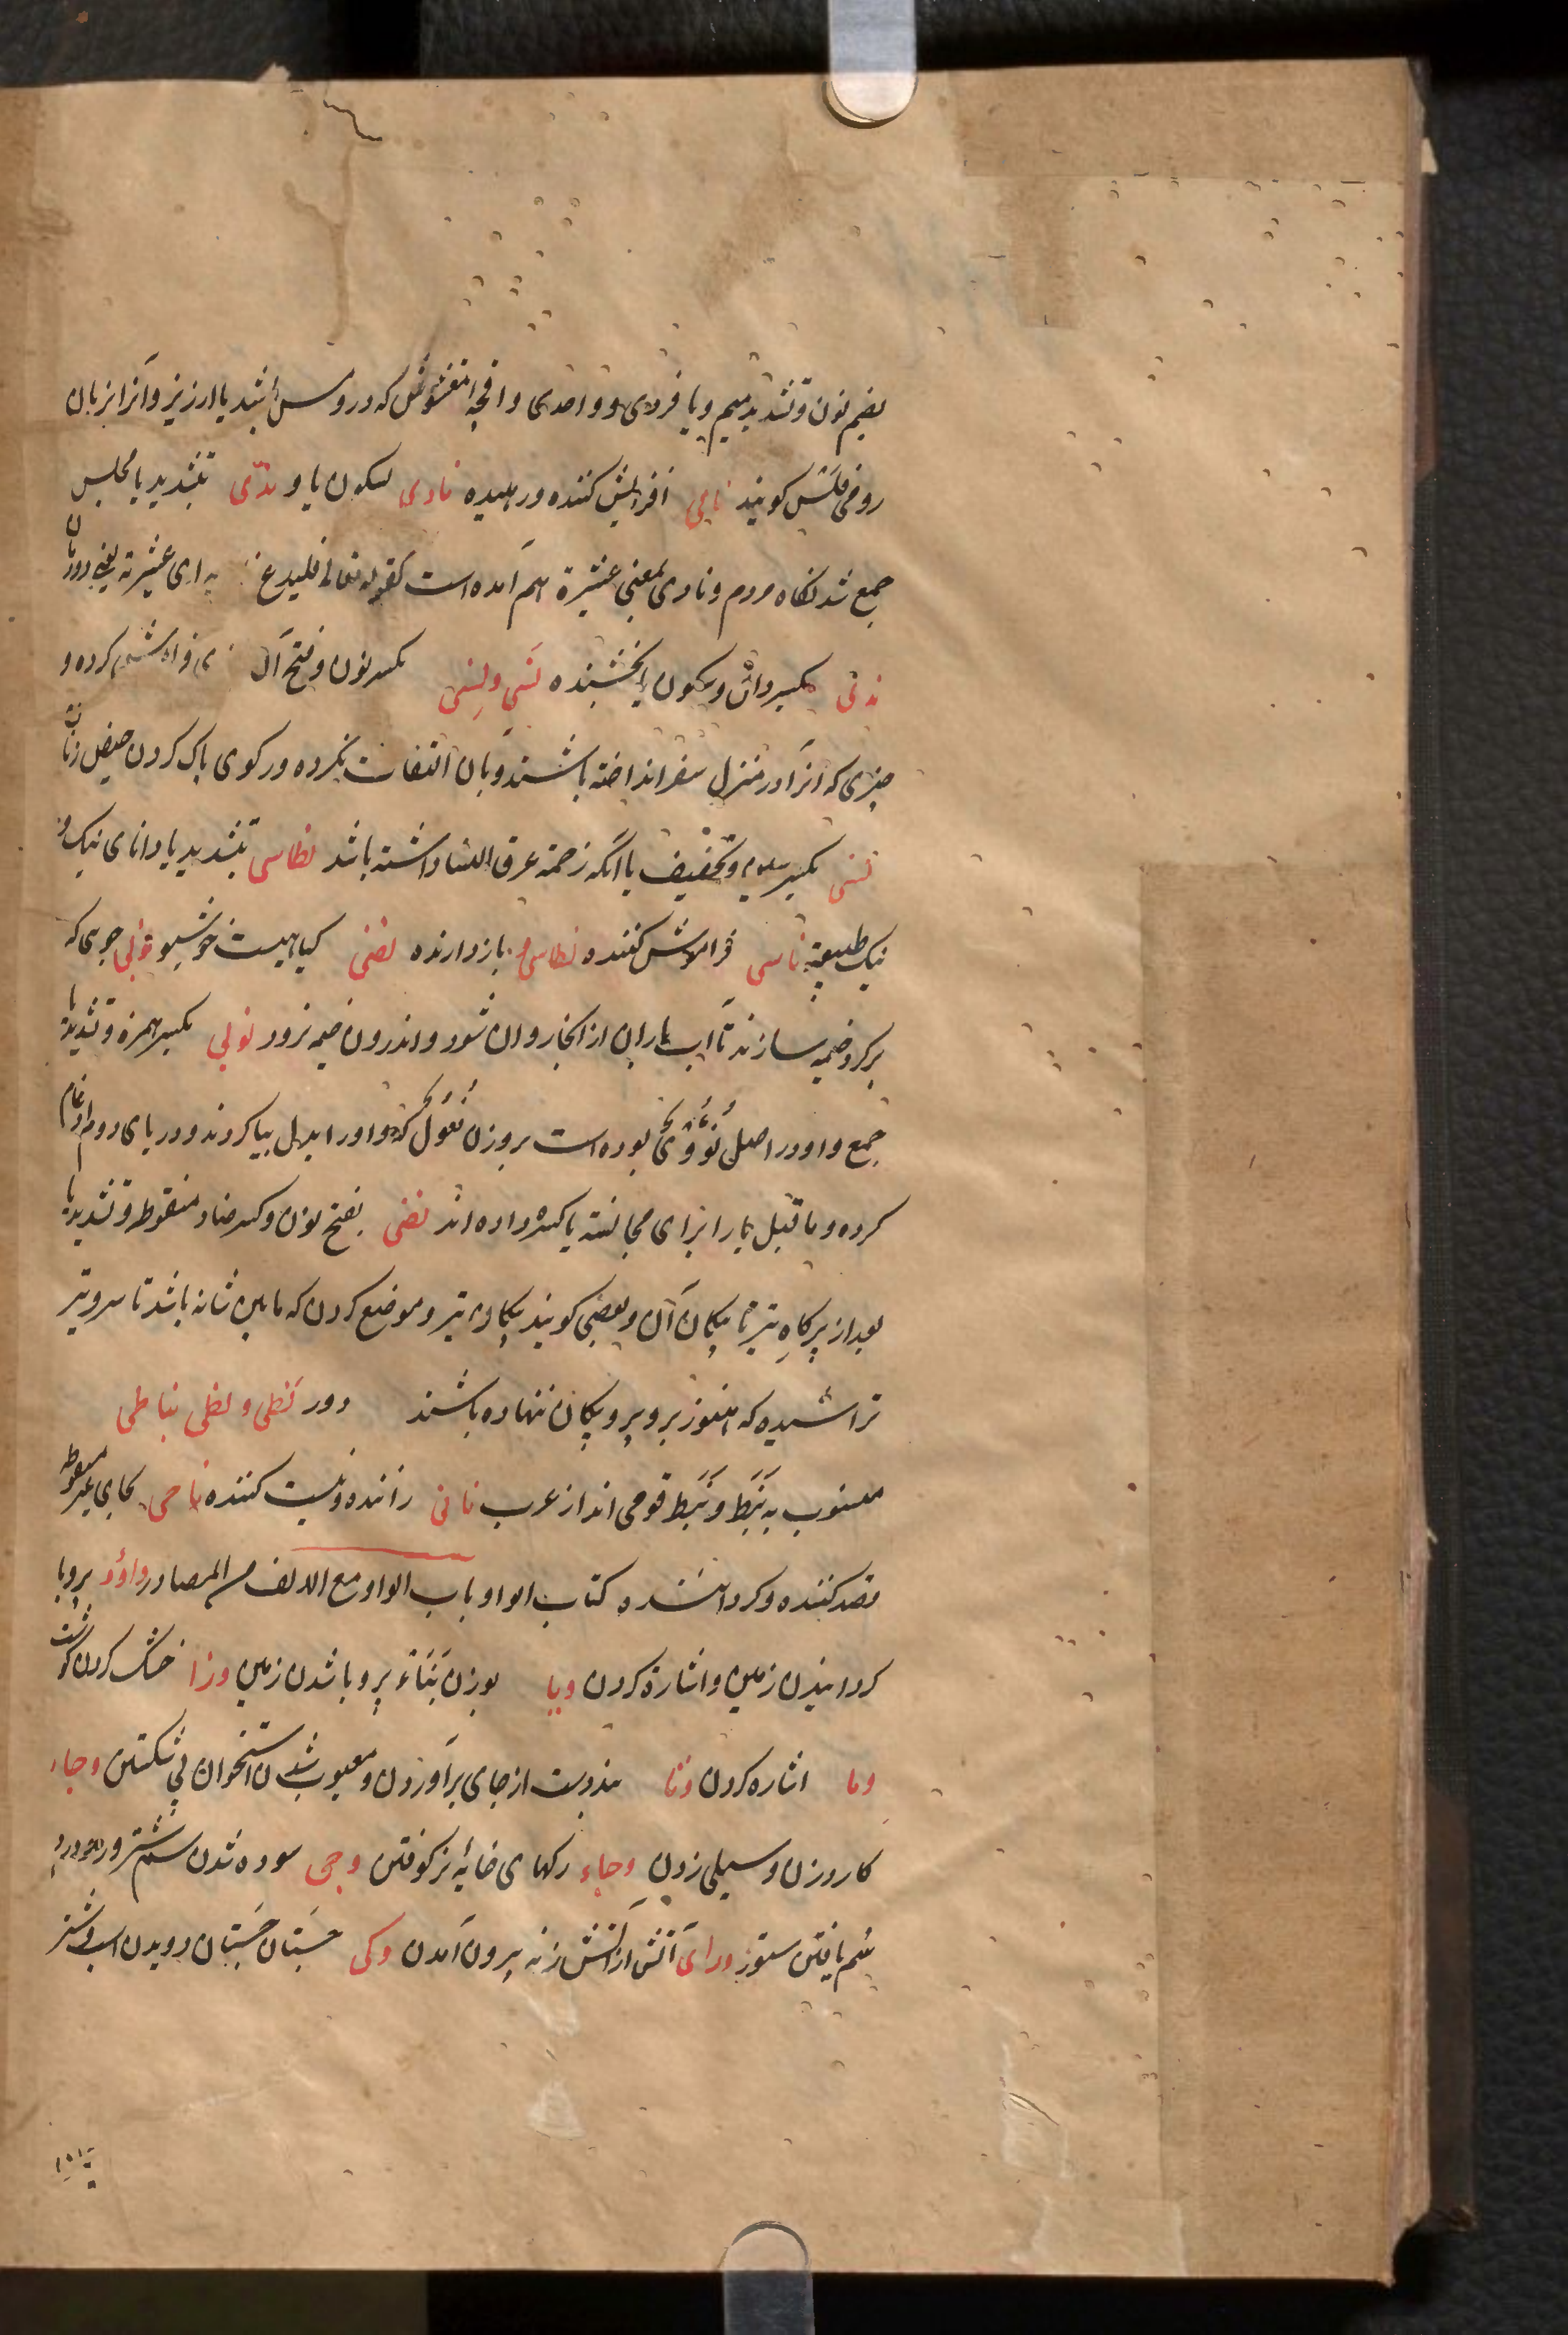 بضم نون و تشدید میم و یا فردی و واحدی و اقچه مغشوش که درو مس باشد یا ارزیز و آنرا بزبان
رومی فلس کویند نامی افزایش کننده و رهیده نادی بسکون یا و ندی بتشدید یا مجلس
جمع شد نکاه مردم و نادی بمعنی عشیرة هم آمده است کقوله تعالی فلیدع نادیه ای عشیرته یعنی
ندی بکسر دال و سکون یا بخشنده نسی و نسی بکسر نون و فتح آن فراموش کرده و
چیزی که آنرا در منزل سفر انداخته باشند و بان التفات نکرده و رکوی پاک کردن حیض زنان
نسی بکسر سین و تخفیف یا آنکه زحمت عرق النسا داشته باشد نطاسی بتشدید یا دانای نیک و
نیک طبیعة ناسی فراموش کننده بازدارنده کیاهیست خوشبو جویی که
بر کرد خیمه سازند تا آب باران از آنجا روان شود و اندرون خیمه نرود نوی بکسر همزه و تشدید یا
جمع و او در اصل نؤوی بوده است بر وزن فعول که واو را ابدال بیا کردند و در یای دوم ادغام
کرده و ما قبل یا را برای مجانسة یا کسره داده اند نضی بفتح نون و کسر ضاد منقوطه و تشدید یا
بعد از پرکاه تیر تا پیکان آن و بعضی کویند پیکان تیر و موضع کردن که مابین شانه باشد تا سر و تیر
تراشیده که هنوز برو پر و پیکان ننهاده باشند دور نبطی و نبطی نباطی
منسوب به نبط و نبط قومی اند از عرب نافی راننده و نیست کننده ناحی بحای غیر منقوطه
قصد کننده و کرداننده کتاب الواو باب الواو مع الالف من المصادر
کردانیدن زمین و اشارة کردن وبا بوزن بناء پر وبا شدن زمین وزا خشک کردن کوشت
وما اشاره کردن وثا بند دست از جای برآوردن و معیوب شدن استخوان بی شکستن وجاء
کارد زدن و سیلی زدن وجاء رکهای خایه نر کوفتن وجی سوده شدن سم شتر و
سم یافتن ستور آتش از آتش زنه بیرون آمدن وکی جستان جستان دویدن اسب و شتر